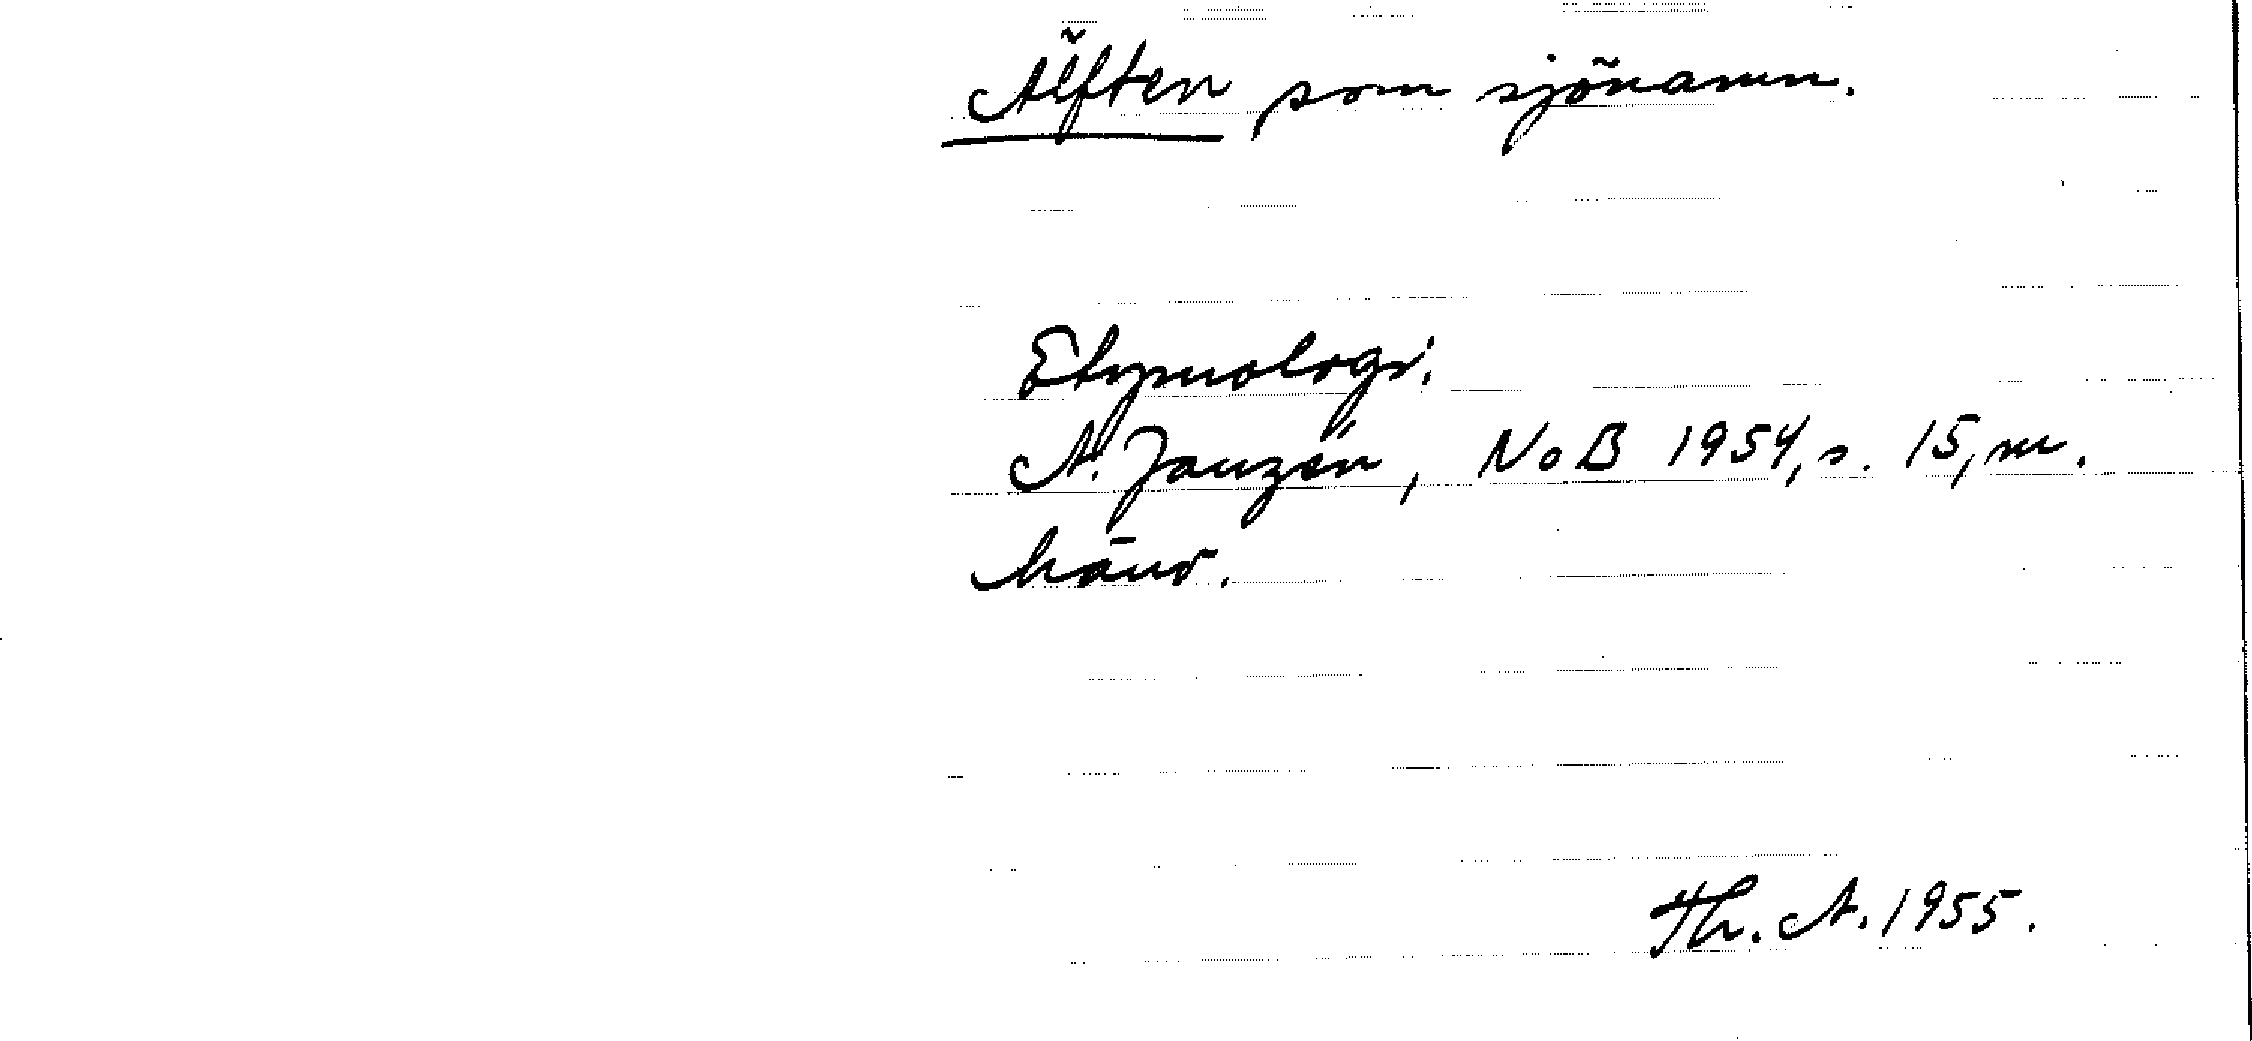 Älften som sjönamn.
Etymologi.
A. Janzén, NoB 1954, s. 15, m.
hänv.
Th. A. 1955.